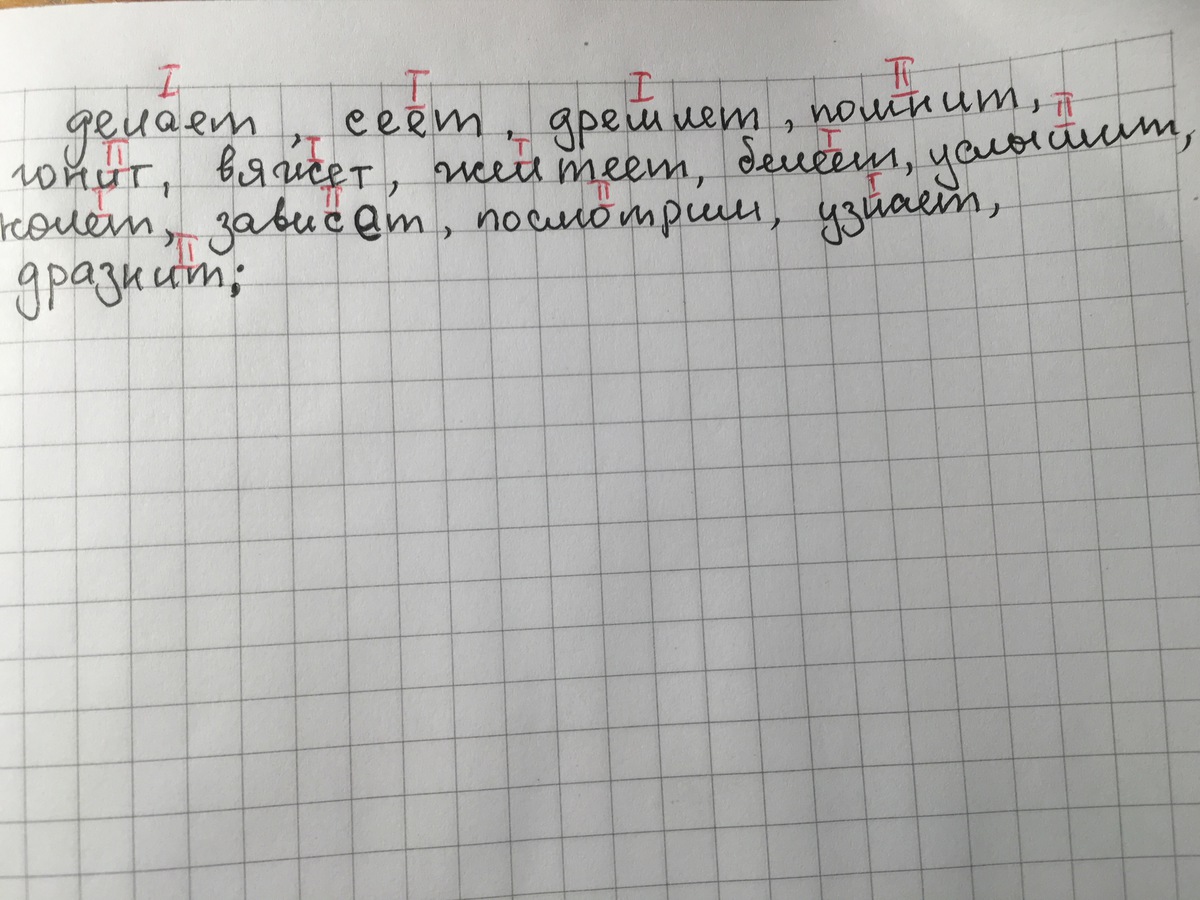 I I I II
делает, сеет, дремлет, помнит,
II I I I II
гонит, вяжет, желтеет, белеет, услышит,
I II II I
колет, зависет, посмотрим, узнает,
II
дразнит;